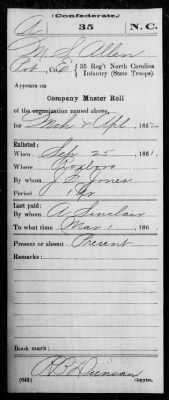 (Confederate.)
A 35 N.C.
M. S. Allen
Pvt, Co. E, 35 Reg't North Carolina
Infantry (State Troops).
Appears on
Company Muster Roll
of the organization named above,
for Mch & Apl, 1862
Enlisted:
When Sep 25, 1861.
Where Roxboro
By whom J. Jones
Period 1 Yr
Last paid:
By whom A Sinclair
To what time Mar 1, 186
Present or absent Present
Remarks:
Book mark:
R B Duncan
(642) Copyist.